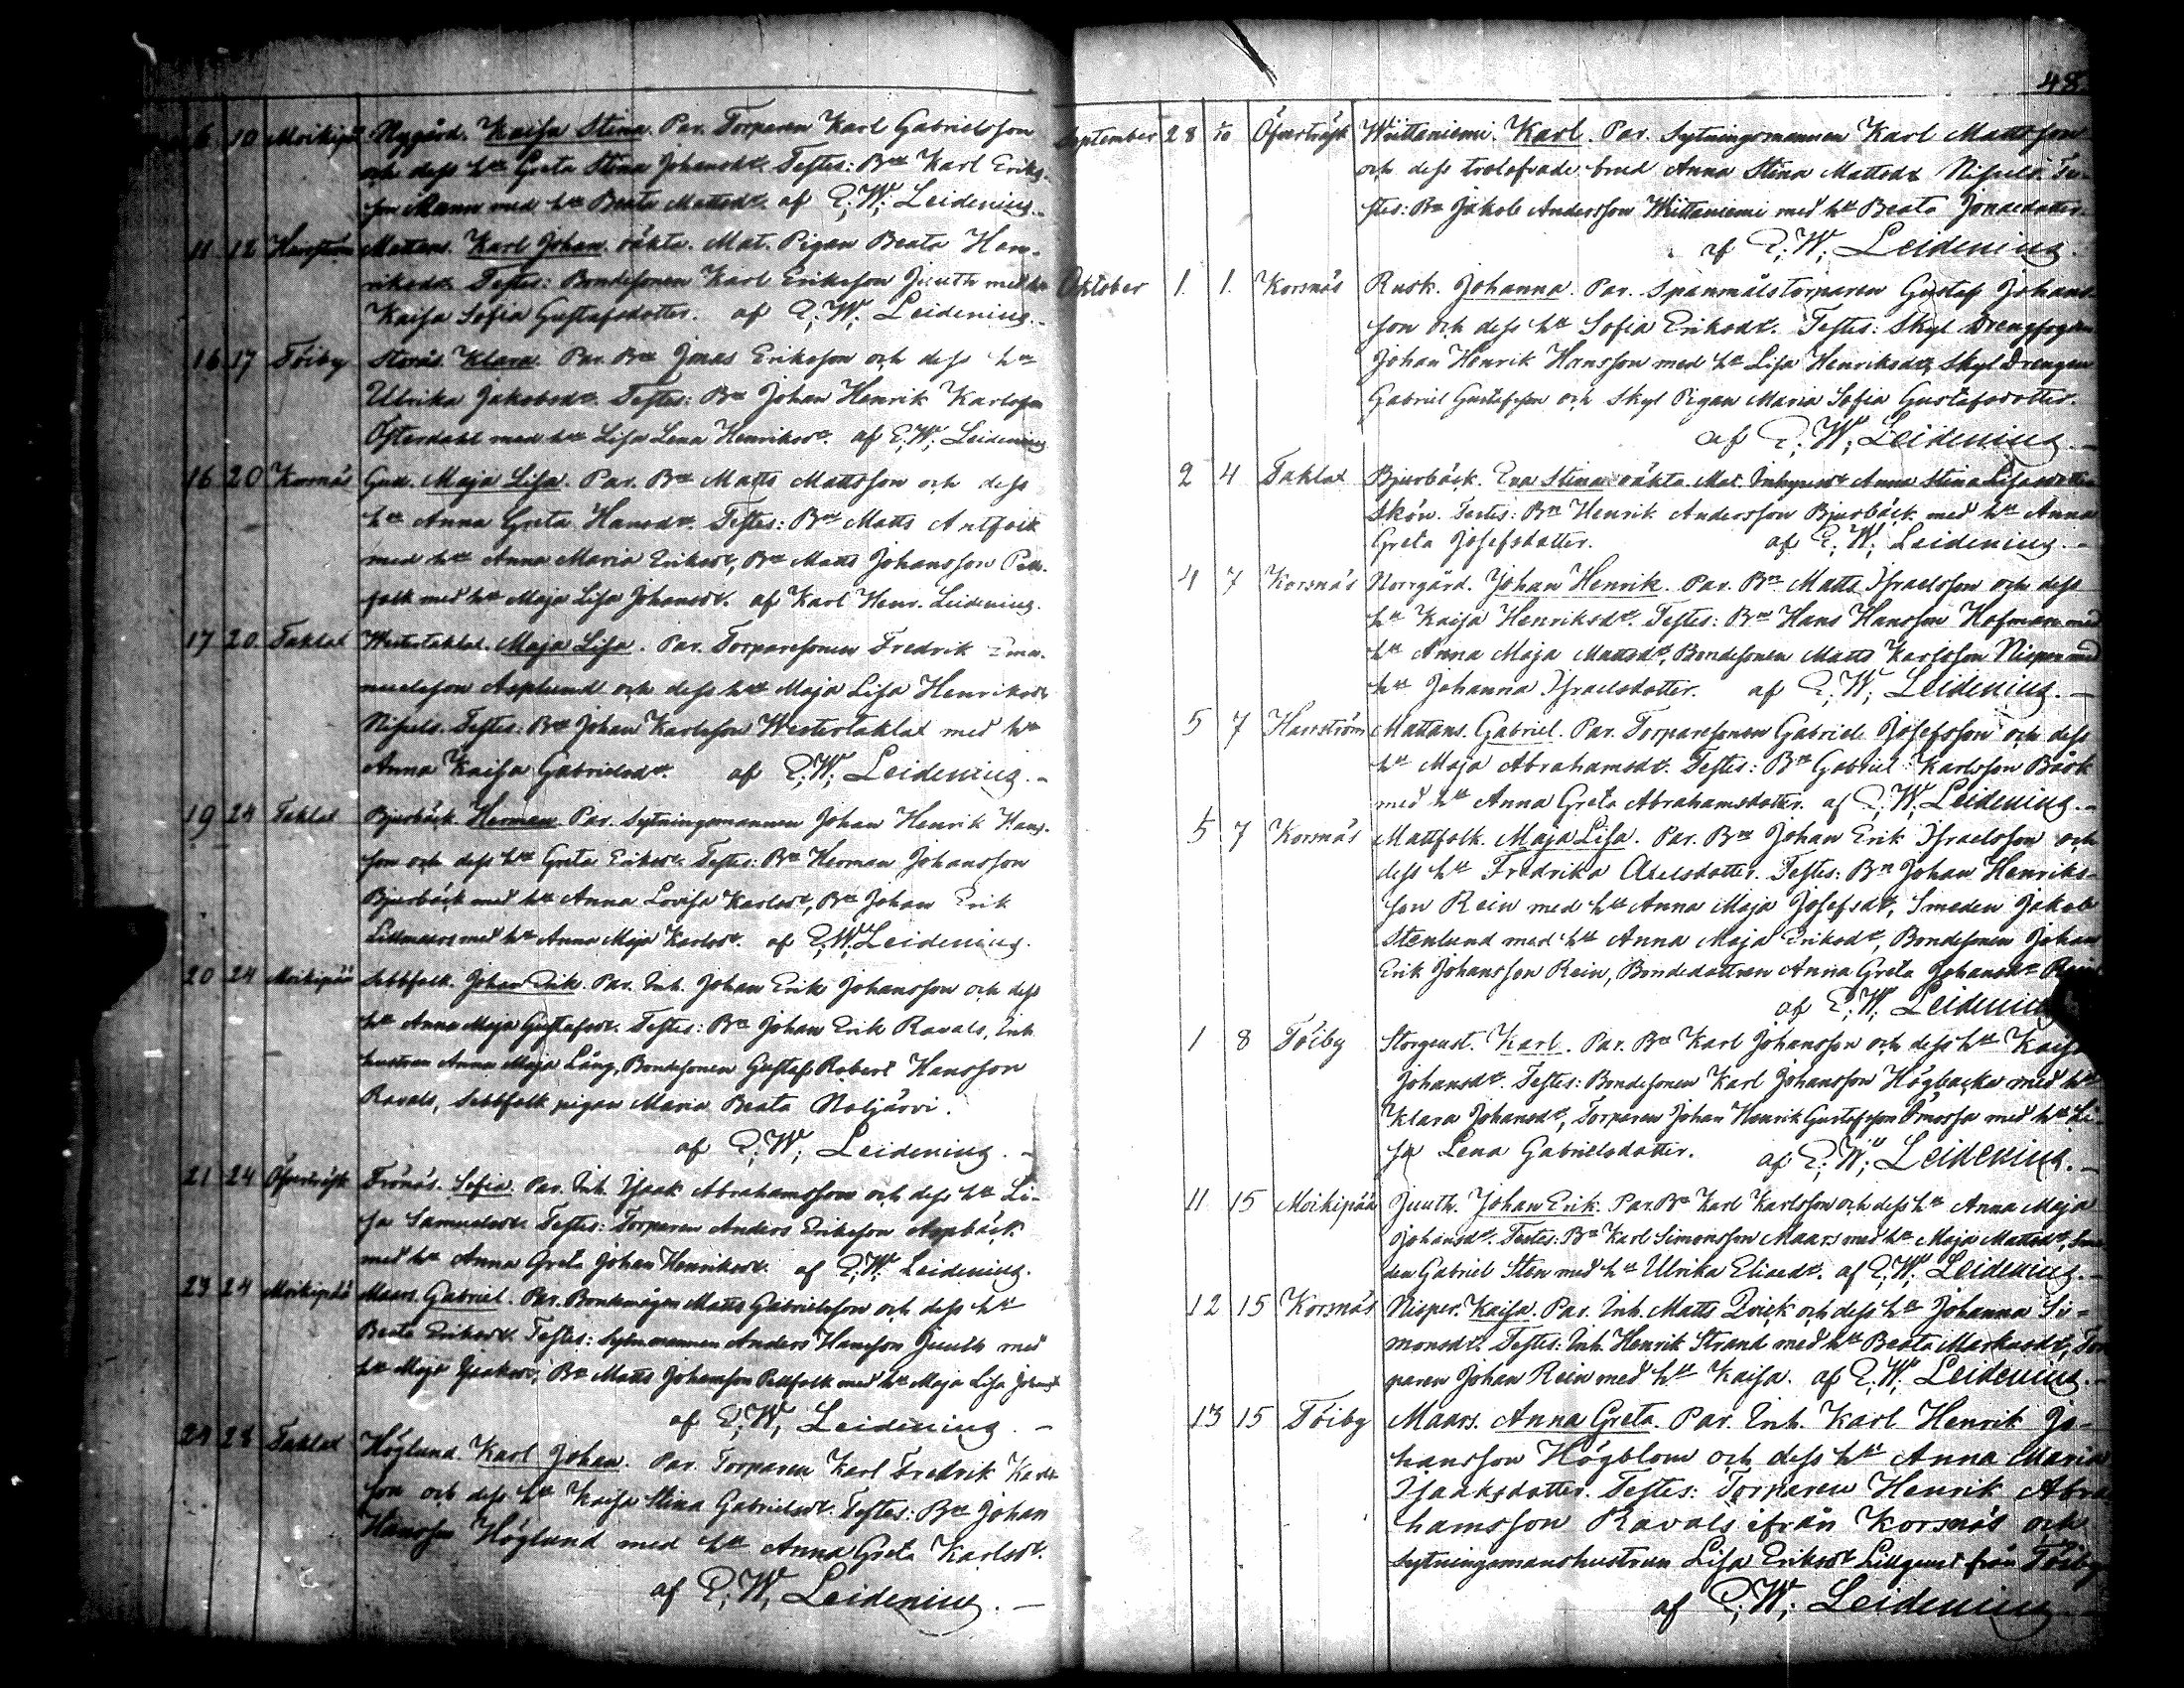 6 10 Moikipä Nygård. Kaisa Stina. Par. Torparen Karl Gabrielsson
och dess hu Greta Stina Johansdr. Testes: Bn Karl Eriks-
son Mann med hu Beata Mattsdr. af E. W. Leidenius.
11 12 Harström Mattans. Karl Johan. oäkta. Mat. Pigan Beata Hen-
riksdr. Testes: Bondesonen Karl Eriksson Juuth med hu
Kaisa Sofia Gustafsdotter. af E. W. Leidenius.
16 17 Töiby Storås. Klara. Par. Bn Jonas Eriksson och dess hu
Ulrika Jakobsdr. Testes: Bn Johan Henrik Karlsson
Österdahl med hu Lisa Lena Henriksdr. af E. W. Leidenius
16 20 Korsnäs Gus. Maja Lisa. Par. Bn Matts Mattsson och dess
hu Anna Greta Hansdr. Testes: Bn Matts Antfolk
med hu Anna Maria Eriksdr, Bn Matts Johansson Pell-
folk med hu Maja Lisa Johansdr. af Karl Henr. Leidenius.
17 20 Taklax Westertaklax. Maja Lisa. Par. Torparesonen Fredrik Ema-
nuelsson Asplund och dess hu Maja Lisa Henriksdr
Nissels. Testes: Bn Johan Karlsson Westertaklax med hu
Anna Kaisa Gabrielsdr. af E. W. Leidenius.
19 24 Taklax Bjurbäck. Herman. Par. Sytningsmannen Johan Henrik Hans-
son och dess hu Greta Eriksdr. Testes: Bn Herman Johansson
Bjurbäck med hu Anna Lovisa Karlsdr, Bn Johan Erik
Lillmaars med hu Anna Maja Karlsdr. af E. W. Leidenius.
20 24 Moikipää Sebbfolk. Johan Erik. Par. Inh. Johan Erik Johansson och dess
hu Anna Maja Gustafsdr. Testes: Bn Johan Erik Ravals, Inh.
hustrun Anna Maja Lång, Bondesonen Gustaf Robert Hansson
Ravals, Sebbfolk pigan Maria Beata Noljärvi.
af E. W. Leidenius.
21 24 Öfverträsk Frönäs. Sofia. Par. Inh. Isaak Abrahamsson och dess hu Li-
sa Samuelsdr. Testes: Torparen Anders Eriksson Aspbäck
med hu Anna Greta Johan Henriksdr. af E. W. Leidenius.
23 24 Moikipää Maars. Gabriel. Par. Bondemågen Matts Gabrielsson och dess hu
Beata Eriksdr. Testes: Sytn.mannen Anders Hansson Juuth med
hu Maja Isaksdr, Bn Matts Johansson Pellfolk med hu Maja Lisa Johansdr
af E. W. Leidenius.
24 28 Taklax Höglund. Karl Johan. Par. Torparen Karl Fredrik Karls-
son och dess hu Kaisa Stina Gabrielsdr. Testes: Bn Johan
Hansson Höglund med hu Anna Greta Karlsdr.
af E. W. Leidenius.
48.
September 28 Öfverträsk Wiittaniemi. Karl. Par. Sytningsmannen Karl Mattsson
och dess trolofvade brud Anna Stina Mattsdr Nissels. Te-
stes: Bn Jakob Andersson Wiittaniemi med hu Beata Jonasdotter.
af E. W. Leidenius.
Oktober 1. 1. Korsnäs Rusk. Johanna. Par. Spanmålstorparen Gustaf Johans-
son och dess hu Sofia Eriksdr. Testes: Skyl Drengsogen
Johan Henrik Hansson med hu Lisa Henriksdr, Skyl Drengen
Gabriel Gustafsson och Skyl Pigan Maria Sofia Gustafsdotter.
af E. W. Leidenius.
2 4 Taklax Bjurbäck. Eva Stina oäkta. Mat. Inhyses Anna Stina Lisasdotter
Skön. Testes: Bn Henrik Andersson Bjurbäck med hu Anna
Greta Josefsdotter. af E. W. Leidenius.
4 7 Korsnäs Norrgård. Johan Henrik. Par. Bn Matts Israelsson och dess
hu Kaisa Henriksdr. Testes: Bn Hans Hansson Hofman med
hu Anna Maja Mattsdr, Bondesonen Matts Karlsson Nisper med
hu Johanna Israelsdotter. af E. W. Leidenius.
5 7 Harström Mattans. Gabriel. Par. Torparesonen Gabriel Josefsson och dess
hu Maja Abrahamsdr. Testes: Bn Gabriel Karlsson Bäck
med hu Anna Greta Abrahamsdotter. af E. W. Leidenius.
5 7 Korsnäs Mattfolk. Maja Lisa. Par. Bn Johan Erik Israelsson och
dess hu Fredrika Axelsdotter. Testes: Bn Johan Henriks-
son Rein med hu Anna Maja Josefsdr, Smeden Jakob
Stenlund med hu Anna Maja Eriksdr, Bondesonen Johan
Erik Johansson Rein, Bondedottren Anna Greta Johansdr Rein
af E. W. Leidenius
1 8 Töiby Storgeust. Karl. Par. Bn Karl Johansson och dess hu Kaisa
Johansdr. Testes: Bondesonen Karl Johansson Högbacka med hu
Klara Johansdr, Torparen Johan Henrik Gustafsson Örnossa med hu Li-
sa Lena Gabrielsdotter. af E. W. Leidenius.
11 15 Moikipää Juuth. Johan Erik. Par. Bn Karl Karlsson och dess hu Anna Maja
Johansdr. Testes: Bn Karl Simonsson Maars med hu Maja Mattsdr, Sme-
den Gabriel Sten med hu Ulrika Eliasdr. af E. W. Leidenius.
12 15 Korsnäs Nisper. Kaisa. Par. Inh. Matts Qvick och dess hu Johanna Si-
monsdr. Testes: Inh. Henrik Strand med hu Beata Markusdr, Tor-
paren Johan Rein med hu Kaisa. af E. W. Leidenius.
13 15 Töiby Maars. Anna Greta. Par. Inh. Karl Henrik Jo-
hansson Högblom och dess hu Anna Maria
Isaaksdotter. Testes: Torparen Henrik Abra-
hamsson Ravals ifrån Korsnäs och
Sytningsmanshustrun Lisa Eriksdr Lillgeust från Töiby
af E. W. Leidenius